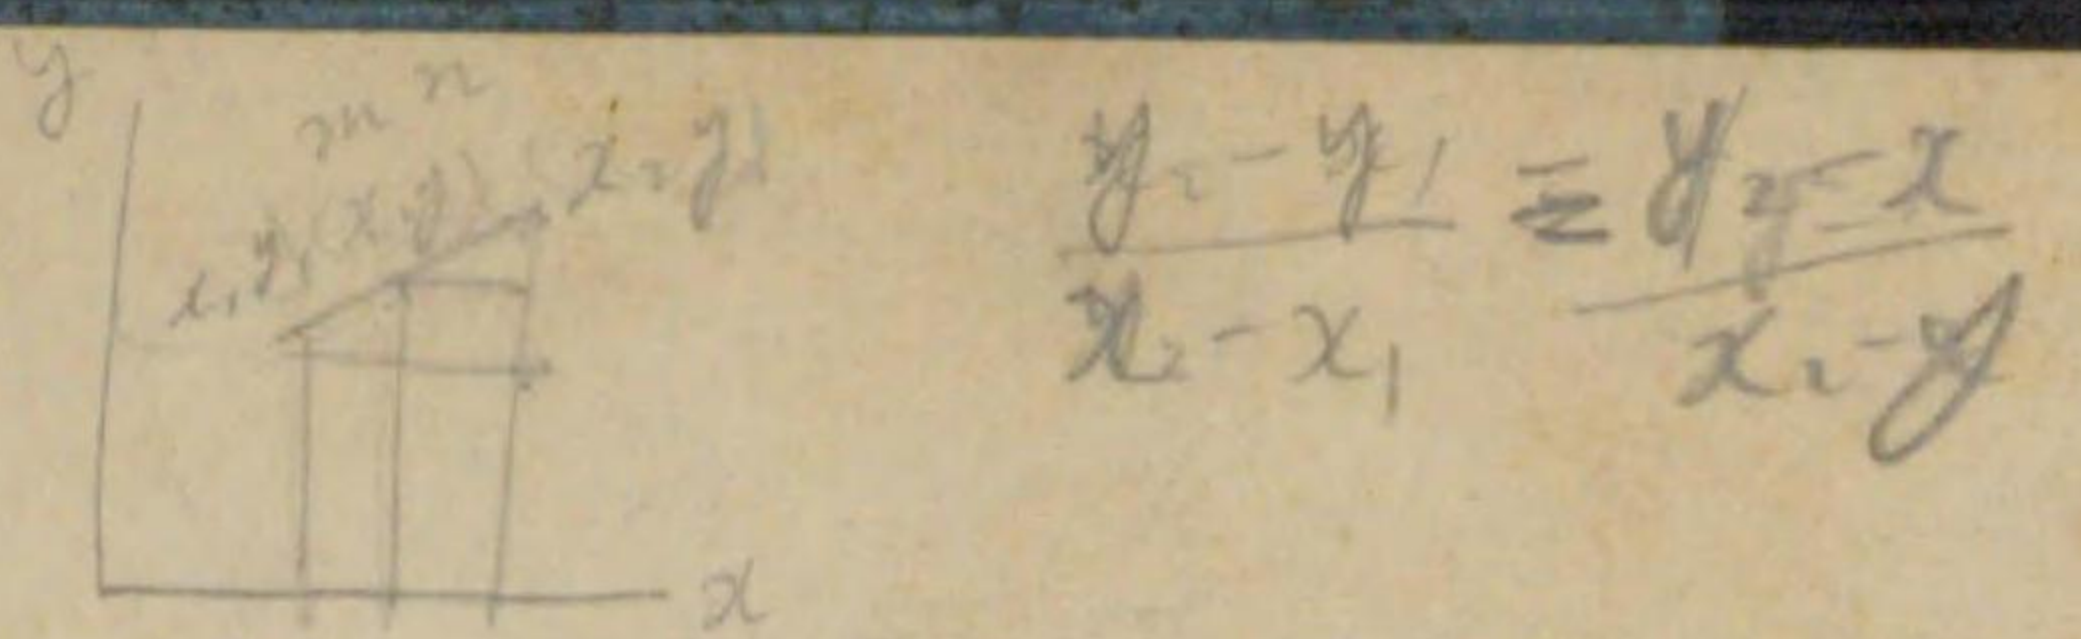 y
m n
x₁ y₁ (x y) (x₂ y₂)
x
y₂ - y₁ = y₂ - x
x₂ - x₁ x₂ - y